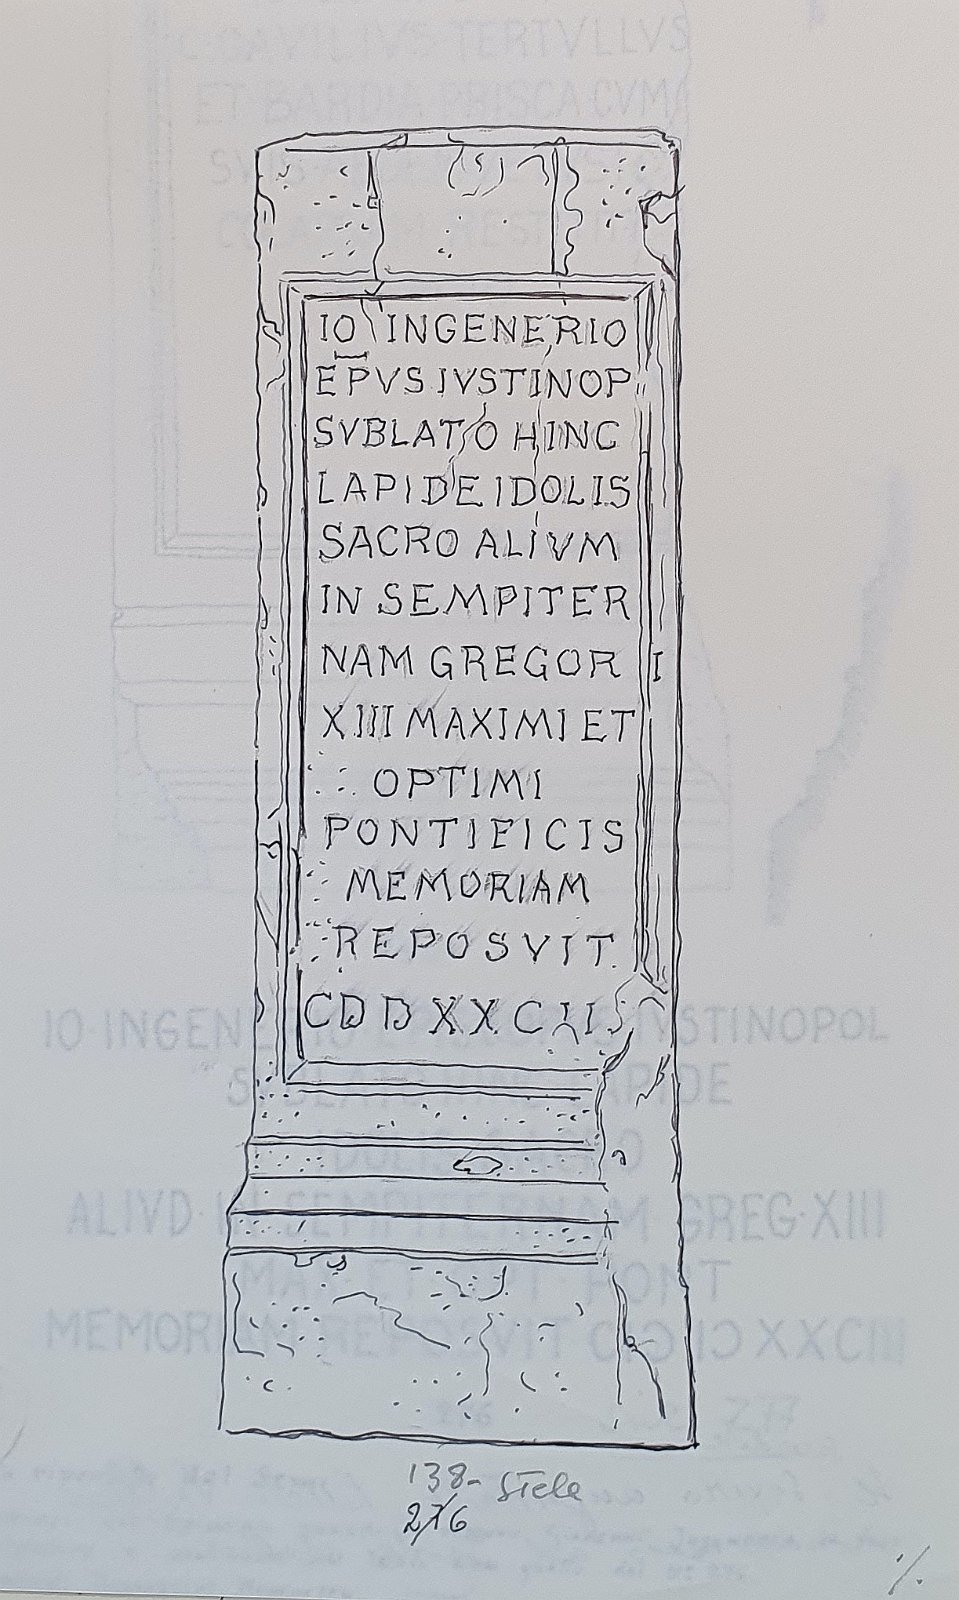 IO INGENERIO
EPVS IVSTINOP
SVBLATO HINC
LAPIDE IDOLIS
SACRO ALIVM
IN SEMPITER
NAM GREGOR I
XIII MAXIMI ET
OPTIMI
PONTIFICIS
MEMORIAM
REPOSVIT
CDDXXCIIS
138- Stele
276